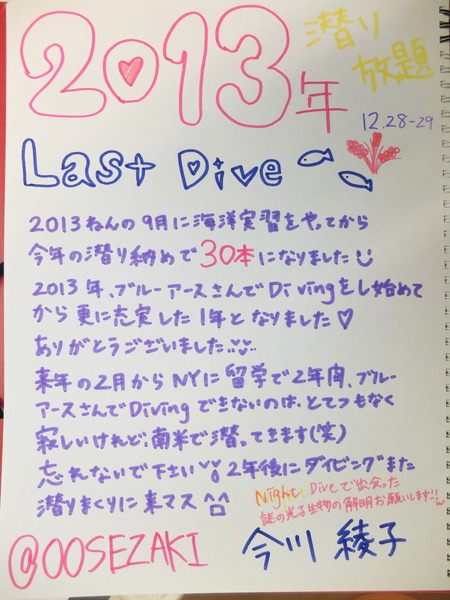 2013年
潜り
放題
12.28-29
Last Dive
2013ねんの9月に海洋実習をやってから
今年の潜り納めで30本になりました
2013年、ブルーアースさんでDivingをし始めて
から更に充実した1年となりました♡
ありがとうございました
来年の2月からNYに留学で2年間、ブルー
アースさんでDivingできないのは、とてつもなく
寂しいけれど、南米で潜ってきます(笑)
忘れないで下さい 2年後にダイビングまた
潜りまくりに来マス
Night Diveで出会った
謎の光る生物の解明お願いします!!
@OOSEZAKI
今川 綾子